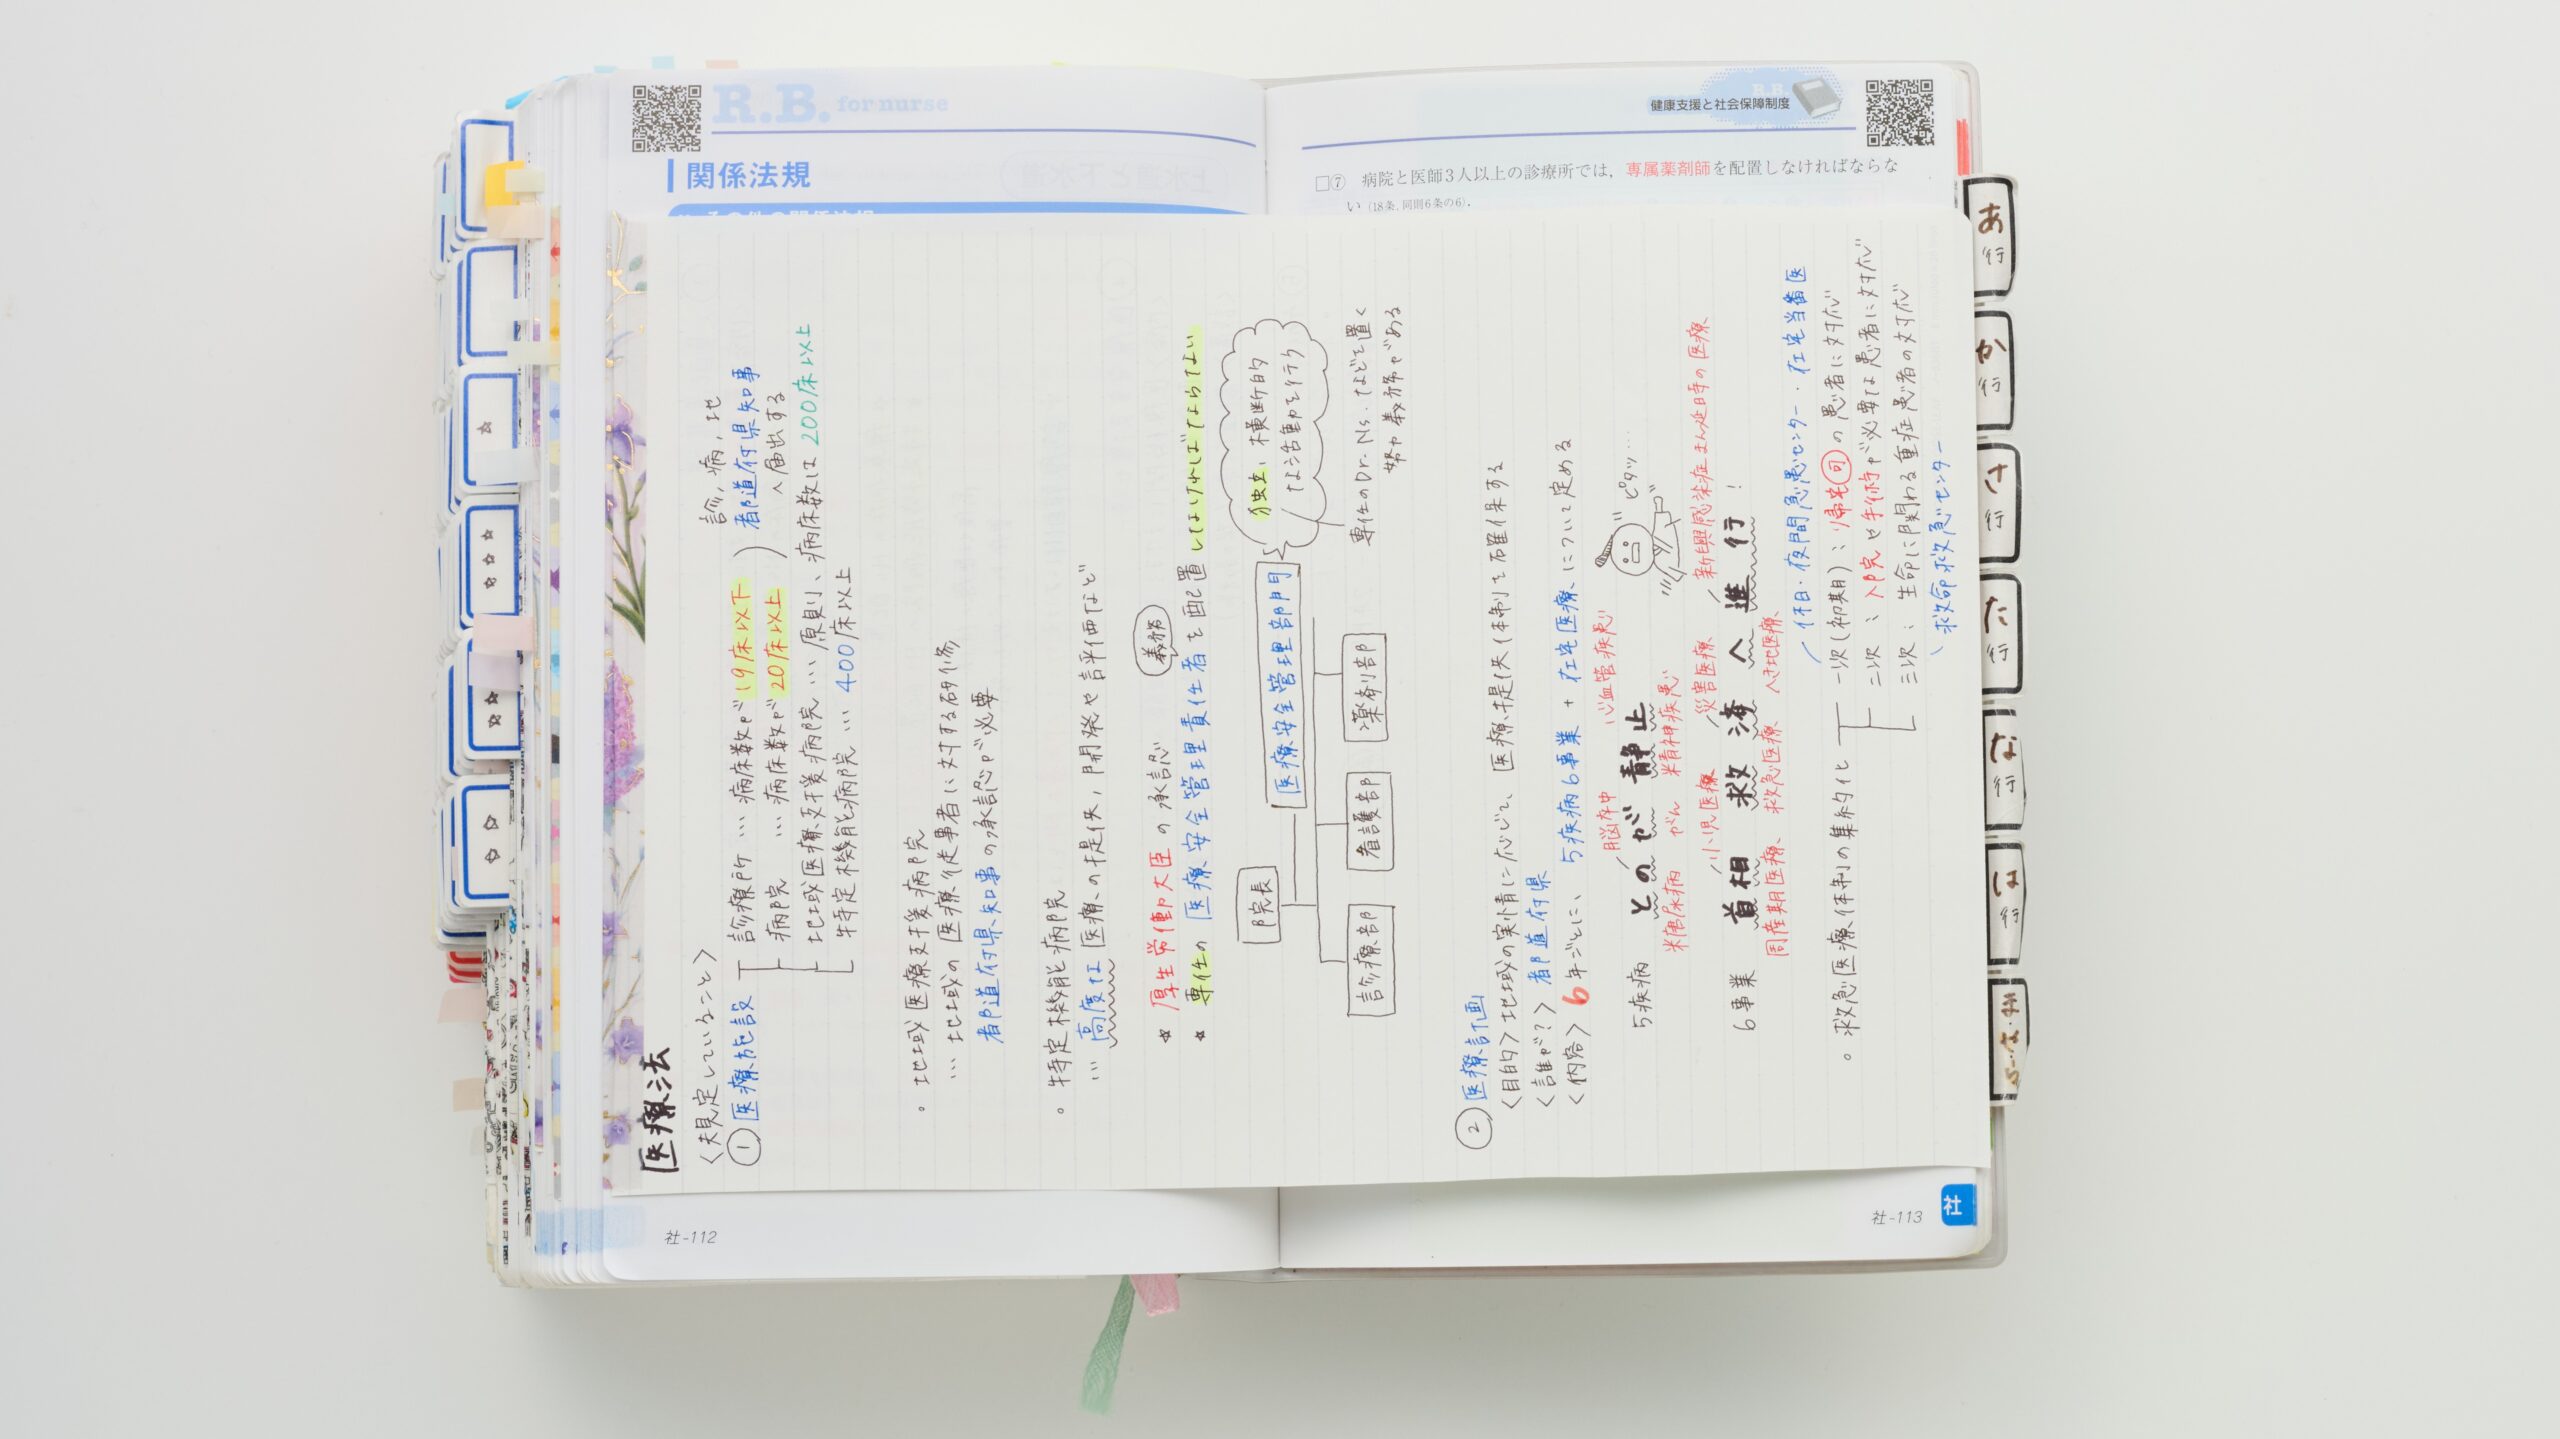 R.B. for nurse
関係法規
R.B.
健康支援と社会保障制度
□⑦ 病院と医師3人以上の診療所では，専属薬剤師を配置しなければならな
い（18条，同則6条の6）．
医療法
〈規定していること〉
① 医療施設
診療所 … 病床数が19床以下
病院 … 病床数が20床以上
診，病，地
都道府県知事
へ届出する
地域医療支援病院 … 原則、病床数は200床以上
特定機能病院 … 400床以上
。地域医療支援病院
… 地域の医療従事者に対する研修
都道府県知事の承認が必要
。特定機能病院
… 高度な医療の提供，開発や評価など
☆ 厚生労働大臣の承認
義務
☆ 専任の医療安全管理責任者を配置しなければならない
院長
医療安全管理部門
独立、横断的
な活動を行う
診療部
看護部
薬剤部
専任のDr.Ns.などを置く
努力義務がある
② 医療計画
〈目的〉地域の実情に応じて、医療提供体制を確保する
〈誰が？〉都道府県
〈内容〉6年ごとに、5疾病6事業＋在宅医療について定める
脳卒中
心血管疾患
ピタッ…
5疾病
とのが静止
糖尿病
がん
精神疾患
小児医療
災害医療
新興感染症まん延時の医療
6事業
首相救済へ進行！
周産期医療
救急医療
へき地医療
休日・夜間急患センター・在宅当番医
。救急医療体制の集約化
一次（初期）：帰宅可の患者に対応
二次：入院や手術が必要な患者に対応
三次：生命に関わる重症患者の対応
救命救急センター
社-112
社-113
社
あ行
か行
さ行
た行
な行
は行